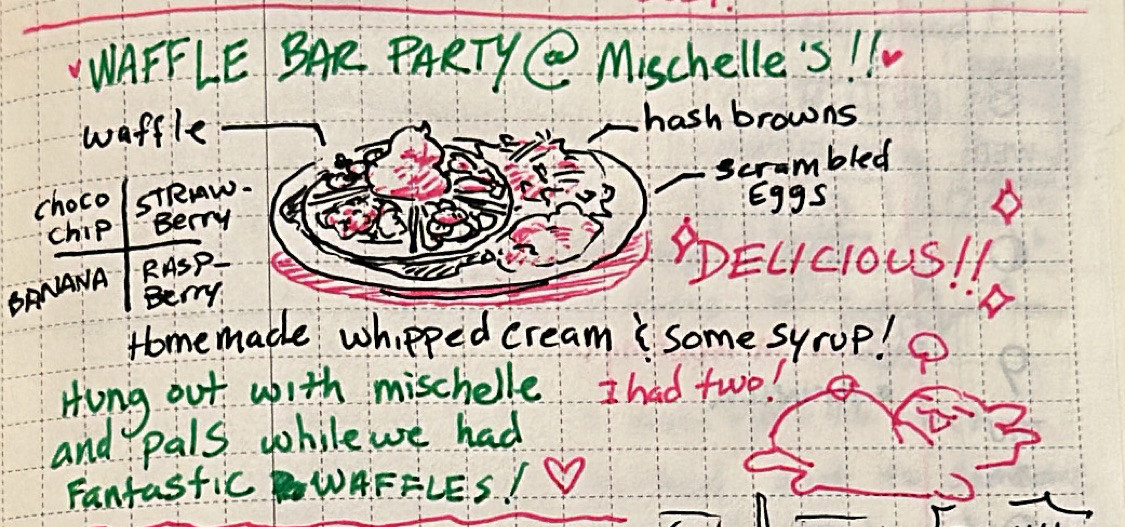 WAFFLE BAR PARTY @ Mischelle's!!
waffle
hash browns
scrambled
Eggs
choco
chip
STRAW-
Berry
BANANA
RASP-
Berry
DELICIOUS!!
Homemade whipped cream & some syrup!
I had two!
Hung out with mischelle
and pals while we had
Fantastic WAFFLES!